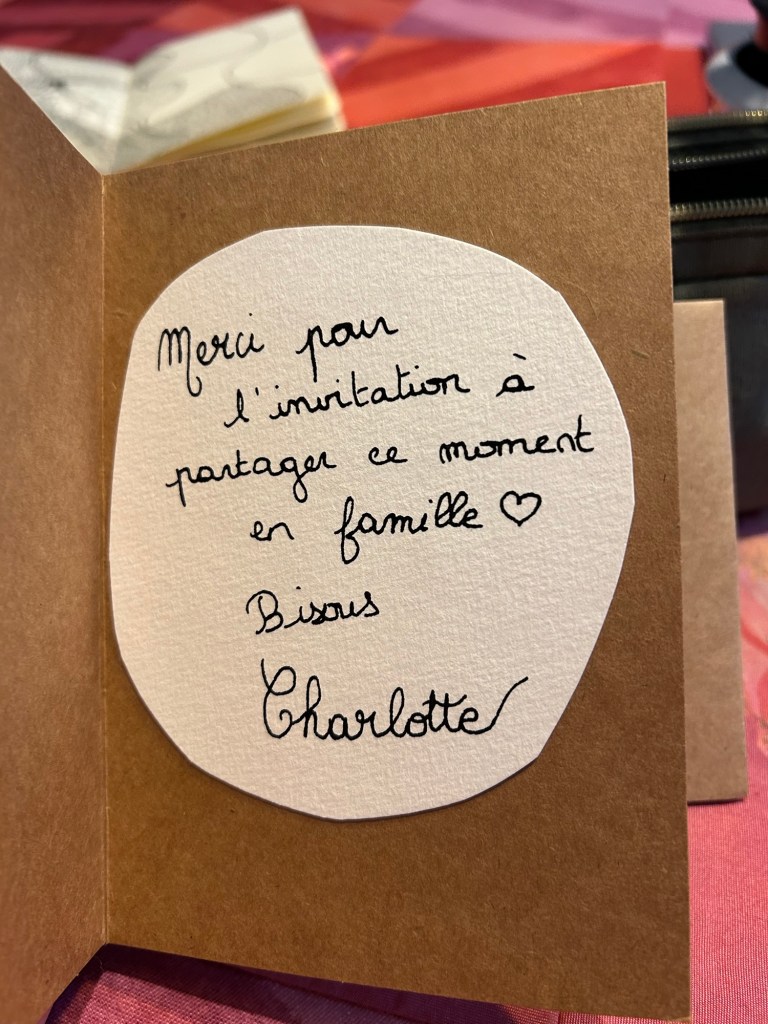 Merci pour
l'invitation à
partager ce moment
en famille ♡
Bisous
Charlotte